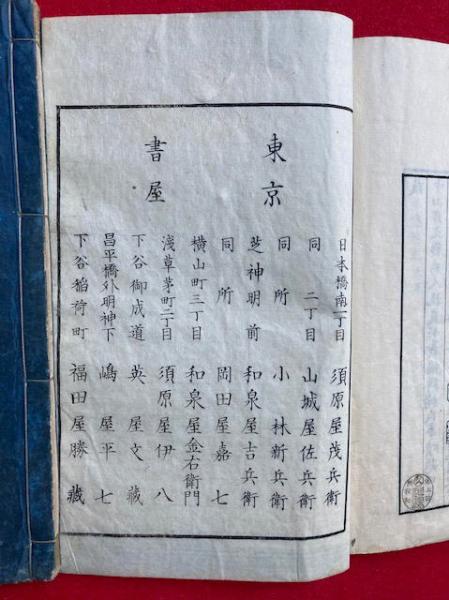 東京
書屋
日本橋南一丁目 須原屋茂兵衛
同 二丁目 山城屋佐兵衛
同所 小林新兵衛
芝神明前 和泉屋吉兵衛
同所 岡田屋嘉七
横山町三丁目 和泉屋金右衛門
浅草茅町二丁目 須原屋伊八
下谷御成道 英屋文藏
昌平橋外明神下 嶋屋平七
下谷稲荷町 福田屋勝藏